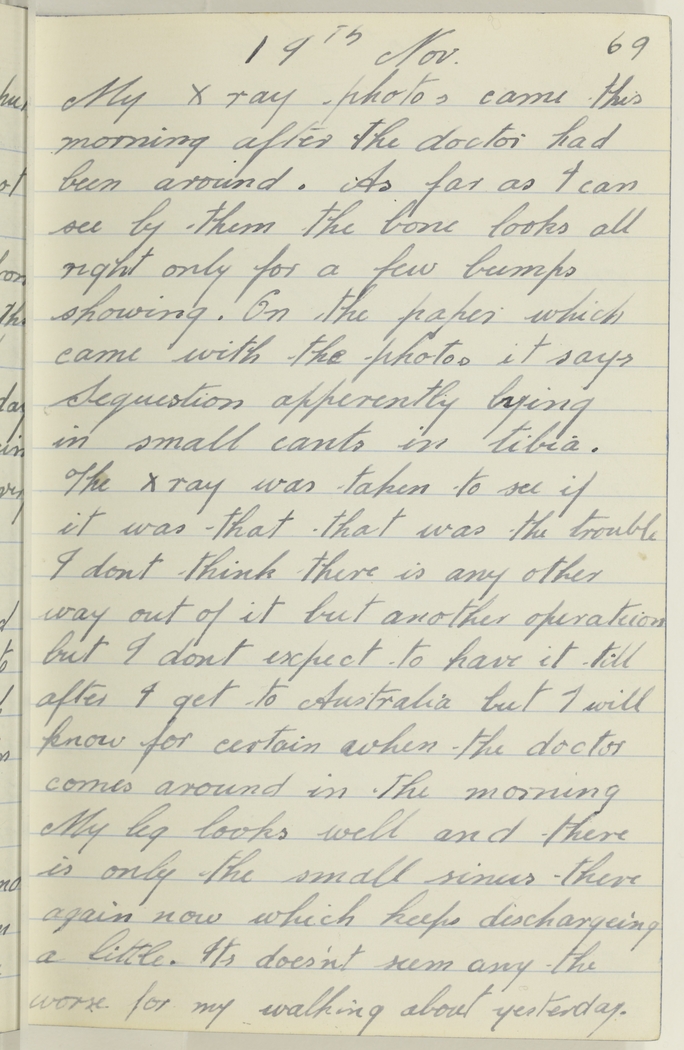 19TH Nov. 69
My X ray photos came this
morning after the doctor had
been around. As far as I can
see by them the bone looks all
right only for a few bumps
showing. On the paper which
came with the photos it says
Sequestion apperently lying
in small cants in tibia.
The X ray was taken to see if
it was that that was the trouble
I dont think there is any other
way out of it but another operation
but I dont expect to have it till
after I get to Australia but I will
know for certain when the doctor
comes around in the morning
My leg looks well and there
is only the small sinus there
again now which keeps dischargeing
a little. Its doesn't seem any the
worse for my walking about yesterday.